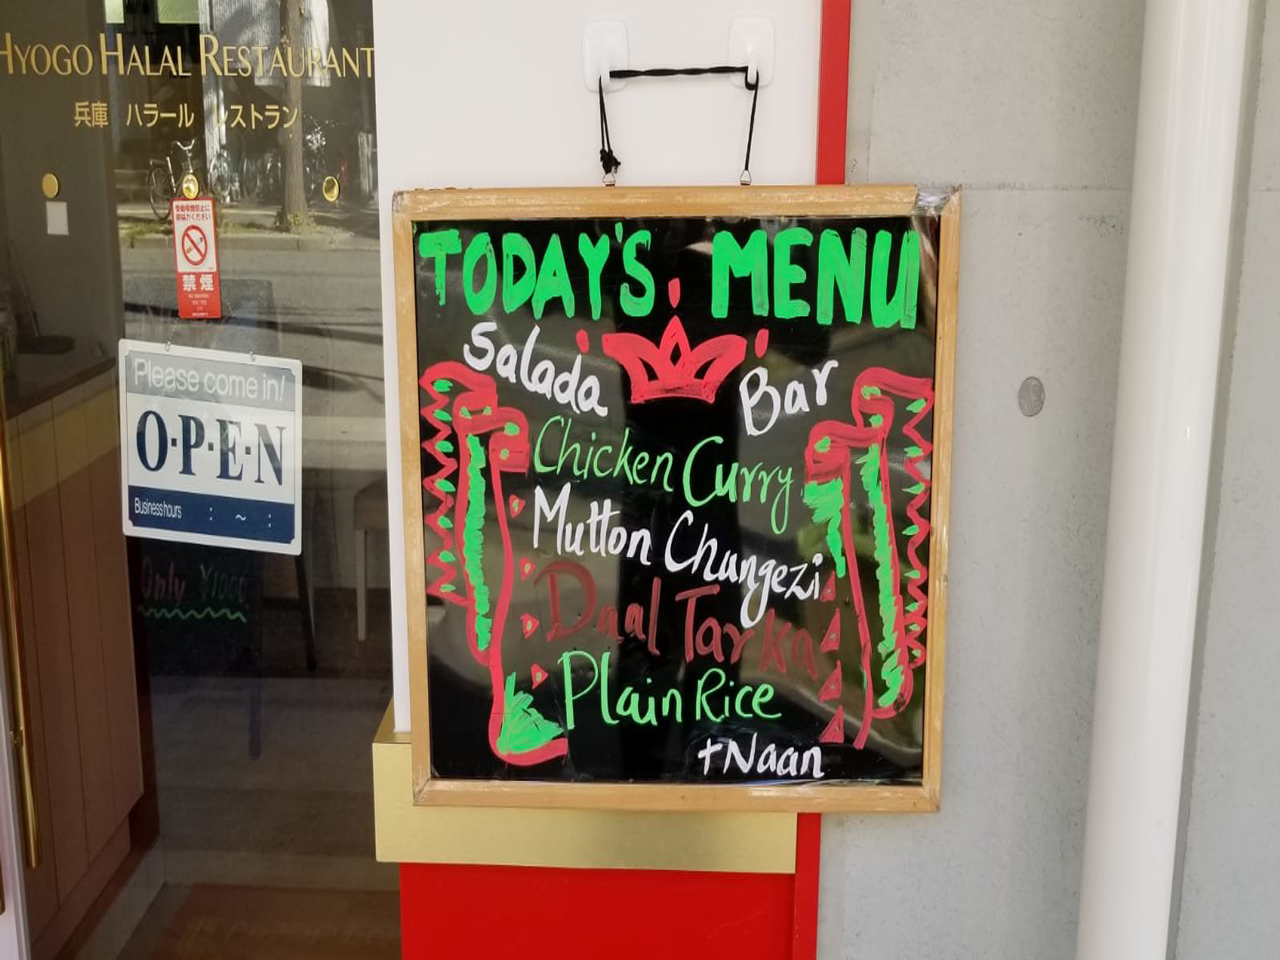 HYOGO HALAL RESTAURANT
兵庫 ハラール レストラン
禁煙
Please come in!
O·P·E·N
Business hours : ~ :
Only ¥1000
TODAY'S MENU
Salada Bar
Chicken Curry
Mutton Changezi
Daal Tarka
Plain Rice
+Naan